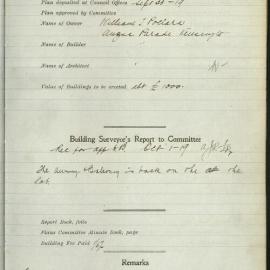 Plan deposited at Council Offices Sept 30-19
Plan approved by Committee
Name of Owner William J Pollard
Parade Kensington
Name of Builder
Name of Architect
Value of Buildings to be erected est £ 1000.
Building Surveyor's Report to Committee
Rec for app Oct 1-19
The is back on the the
lot.
Report Book, folio
Plans Committee Minute Book, page
Building Fee Paid
Remarks